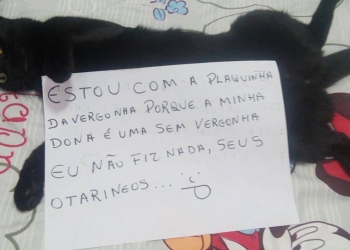 ESTOU COM A PLAQUINHA
DAVERGONHA PORQUE A MINHA
DONA É UMA SEM VERGONHA
EU NÃO FIZ NADA, SEUS
OTARINEOS...